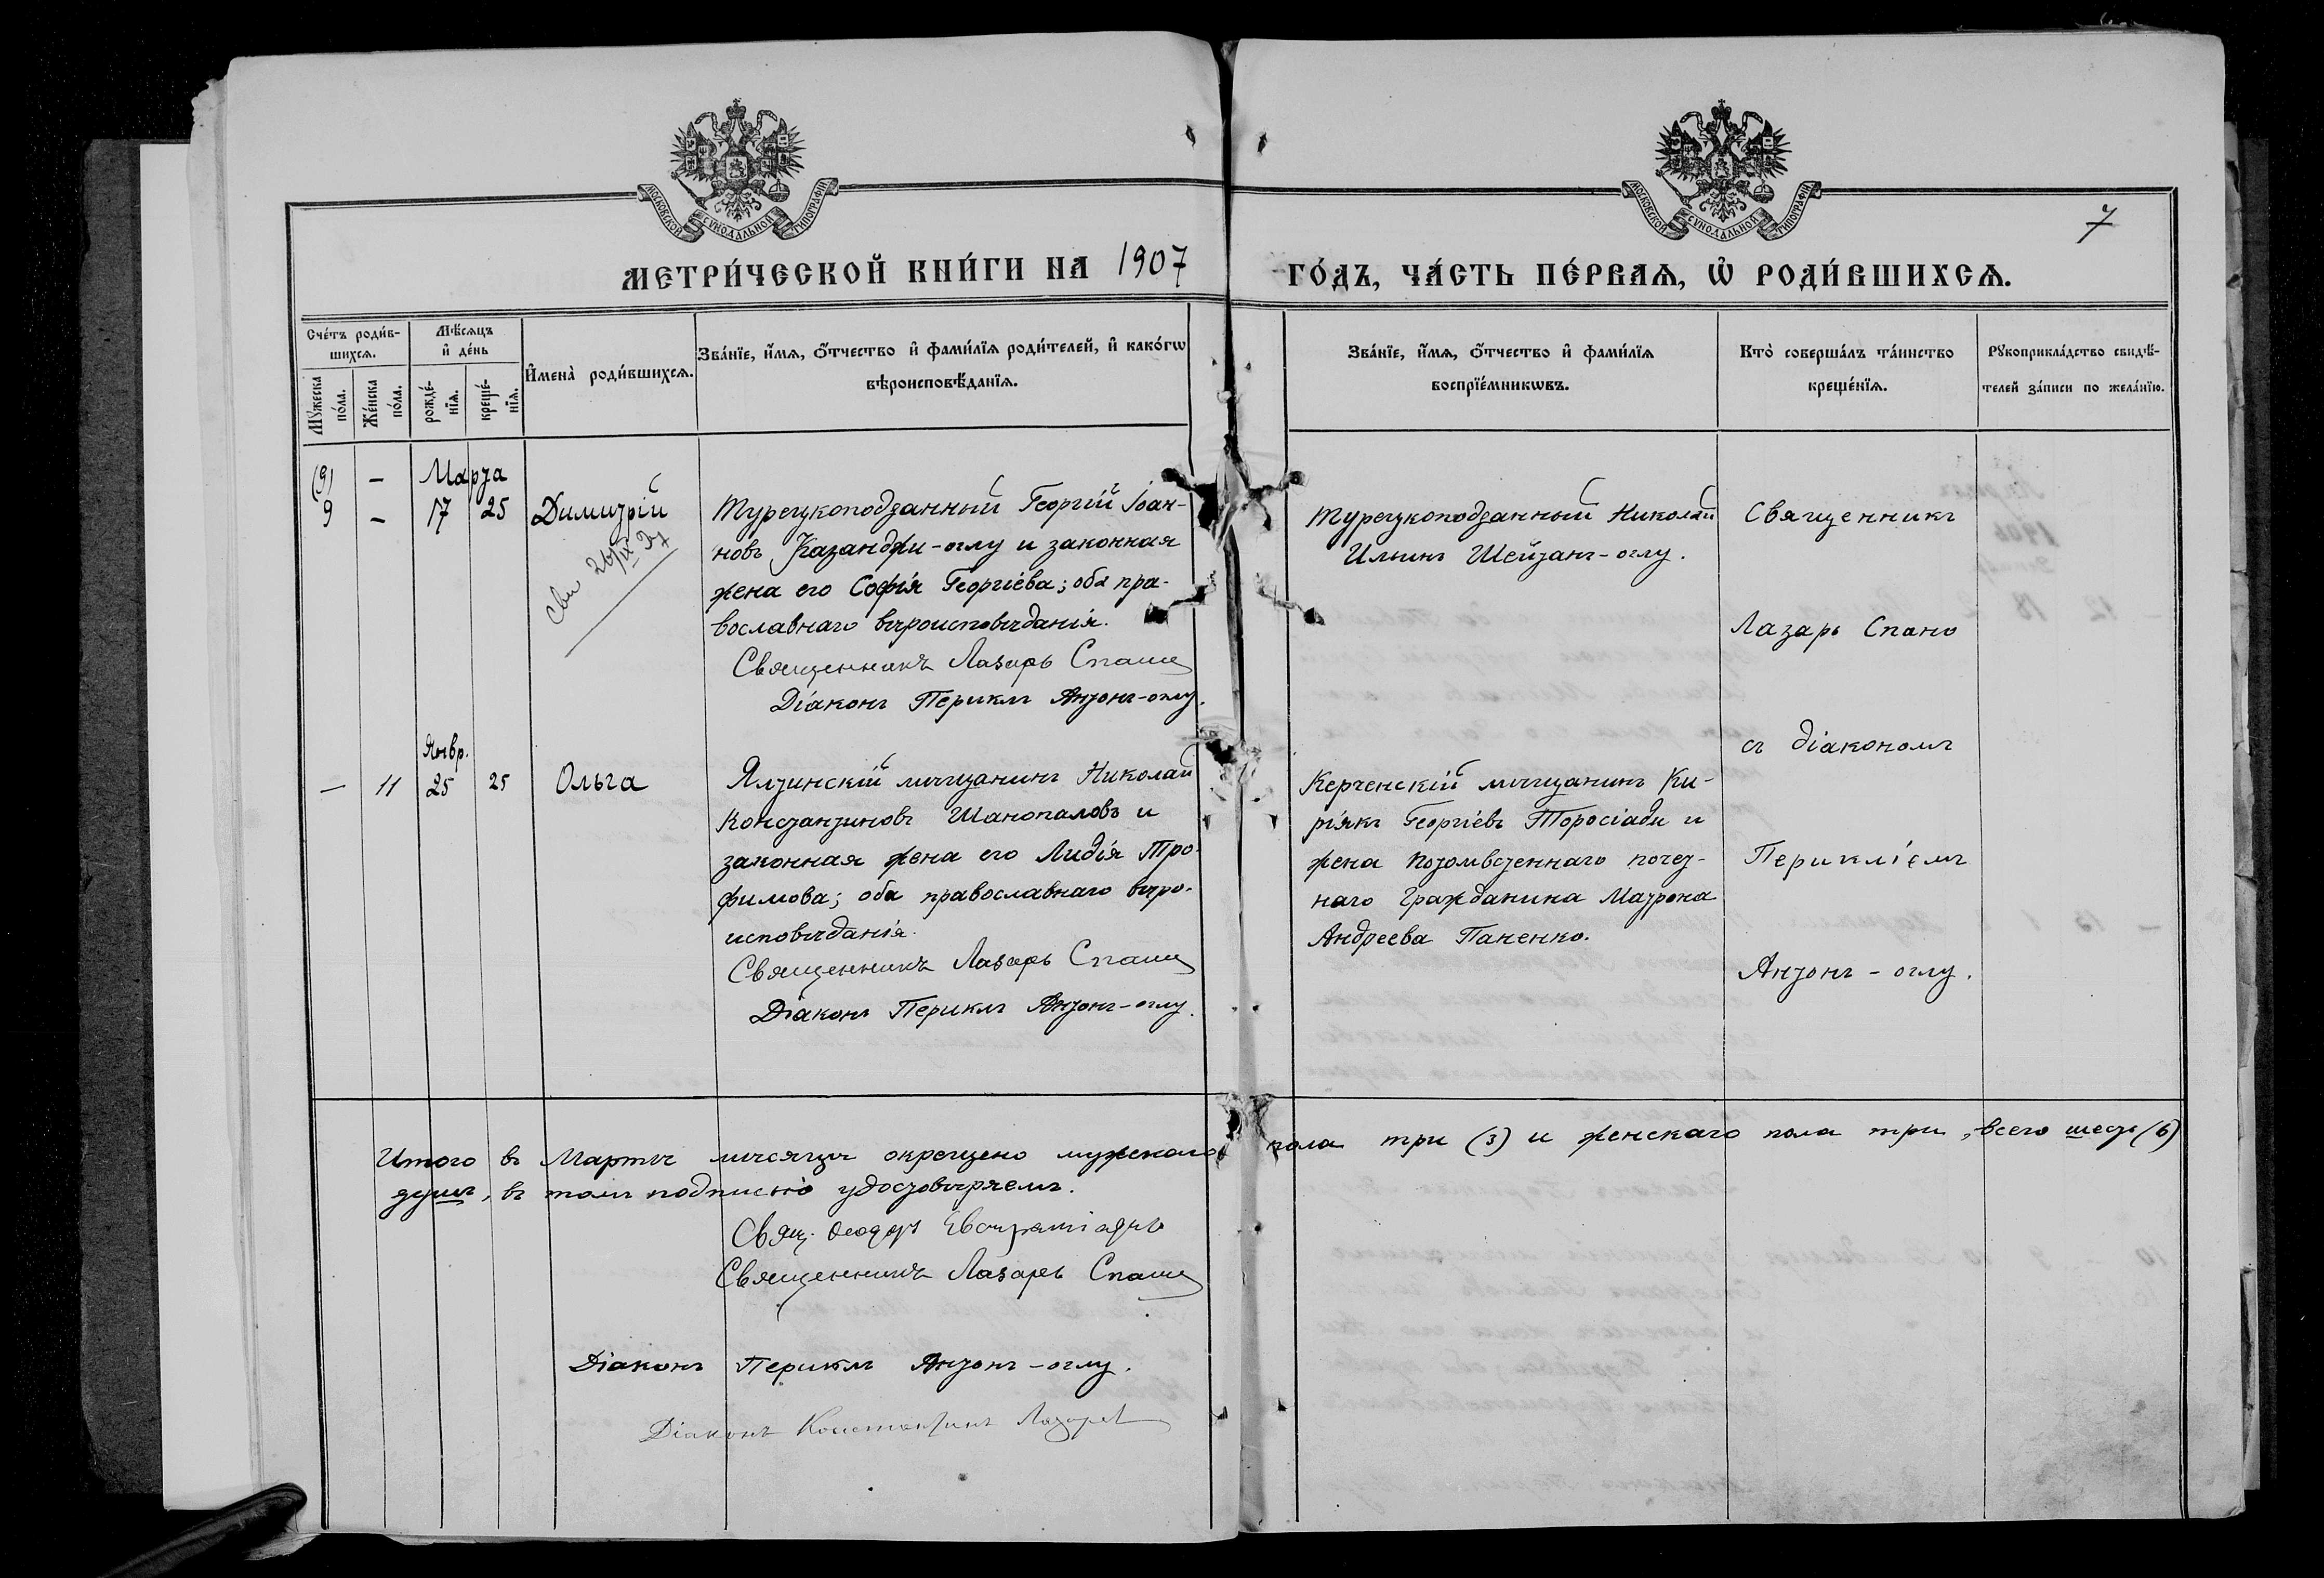 МОСКОВСКОЙ СѴНОДАЛЬНОЙ ТИПОГРАФІИ
МОСКОВСКОЙ СѴНОДАЛЬНОЙ ТИПОГРАФІИ
7
МЕТРИ́ЧЕСКОЙ КНИ́ГИ НА 1907 ГО́ДЪ, ЧА́СТЬ ПЕ́РВАѦ, Ѡ҆ РОДИ́ВШИХСѦ.
Сче́тъ роди́в-
шихсѧ.
Мꙋ́жеска
по́ла.
Же́нска
по́ла.
Мѣ́сѧцъ
и҆ де́нь
рожде́-
нїѧ.
креще́-
нїѧ.
И҆мена̀ роди́вшихсѧ.
Зва́нїе, и҆́мѧ, ѻ҆́тчество и҆ фами́лїѧ роди́телей, и҆ како́гѡ
вѣроисповѣ́данїѧ.
Зва́нїе, и҆́мѧ, ѻ҆́тчество и҆ фами́лїѧ
воспрїе́мникѡвъ.
Кто̀ соверша́лъ та́инство
креще́нїѧ.
Рꙋкоприкла́дство свидѣ́-
телей за́писи по жела́нїю.
(9)
9
-
-
Марта
17 25
Димитрій
Турецкоподданный Георгій Іоан-
новъ Казанджи-оглу и законная
жена его Софія Георгіева; оба пра-
вославнаго вѣроисповѣданія.
Священникъ Лазарь Спано
Діаконъ Периклъ Антонъ-оглу.
Турецкоподданный Николай
Ильинъ Шейтанъ-оглу.
Священникъ
Лазарь Спано
съ діакономъ
Перикліемъ
Антонъ-оглу.
- 11
Янвр.
25 25
Ольга
Ялтинскій мѣщанинъ Николай
Константиновъ Шанопаловъ и
законная жена его Лидія Тро-
фимова; оба православнаго вѣро-
исповѣданія.
Священникъ Лазарь Спано
Діаконъ Периклъ Антонъ-оглу.
Керченскій мѣщанинъ Ки-
ріякъ Георгіевъ Торосіади и
жена потомственнаго почет-
наго гражданина Матрона
Андреева Паненко.
Итого въ Мартѣ мѣсяцѣ окрещено мужескаго пола три (3) и женскаго пола три, всего шесть (6)
душъ, въ томъ подписью удостовѣряемъ.
Свящ. Ѳеодоръ Евстратіадисъ
Священникъ Лазарь Спано
Діаконъ Периклъ Антонъ-оглу.
Діаконъ Константинъ Лазарев